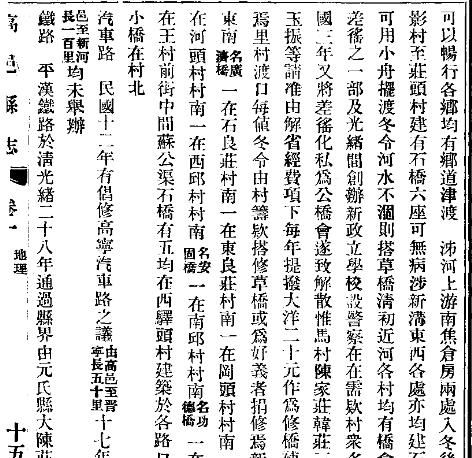 可以暢行各鄉均有鄉道津渡　泲河上游南焦倉房兩處入冬後
影村至莊頭村建有石橋六座可無病涉新溝東西各處亦均建石
可用小舟擺渡冬令河水不涸則搭草橋清初近河各村均有橋會
差徭之一部及光緒間創辦新政立學校設警察在在需欵村衆各
國二年又將差徭化私爲公橋會遂致解散惟馬村陳家莊韓莊三
玉振等請准由解省經費項下每年提撥大洋二十元作爲修橋
焉里村渡口每値冬令由村籌欵搭修草橋或爲好義者捐修焉新
東南名廣濟橋一在石良莊村南一在東良莊村南一在岡頭村村南
在河頭村村南一在西邱村村南名安固橋一在南邱村村南名功德橋一在
在王村前街中間蘇公渠石橋有五均在西驛頭村建築於各路口
小橋在村北
汽車路　民國十二年有倡修高寧汽車路之議由高邑至晋寧長五十里十七年
邑至新河長一百里均未舉辦
鐵路　平漢鐵路於清光緒二十八年通過縣界由元氏縣大陳莊
高邑縣志　卷一　地理　十五